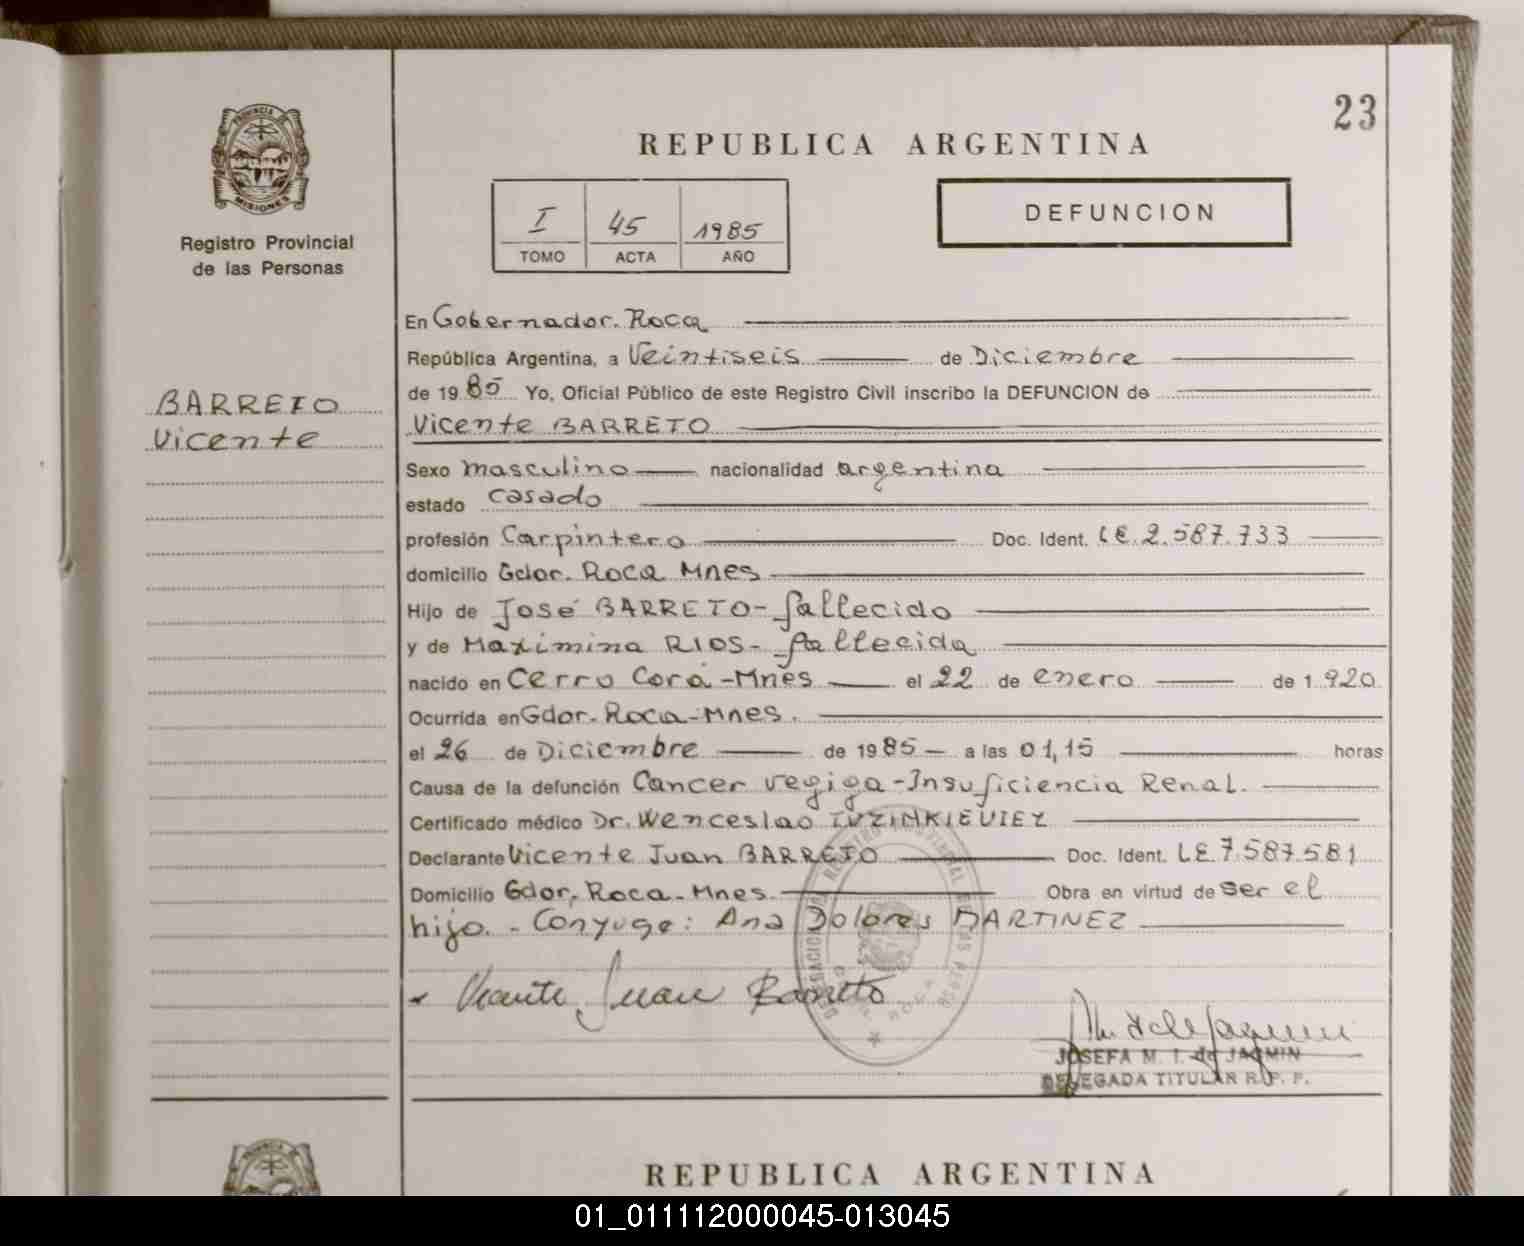 23
PROVINCIA DE
MISIONES
Registro Provincial
de las Personas
REPUBLICA ARGENTINA
I 45 1985
TOMO ACTA AÑO
DEFUNCION
BARRETO
Vicente
En Gobernador. Roca
República Argentina, a Veintiseis de Diciembre
de 1985 Yo, Oficial Público de este Registro Civil inscribo la DEFUNCION de
Vicente BARRETO
Sexo masculino nacionalidad argentina
estado casado
profesión Carpintero Doc. Ident. LE.2.587.733
domicilio Gdor. Roca Mnes
Hijo de José BARRETO- fallecido
y de Maximina RIOS- fallecida
nacido en Cerro Corá -Mnes el 22 de enero de 1.920
Ocurrida en Gdor. Roca-Mnes.
el 26 de Diciembre de 1985 a las 01,15 horas
Causa de la defunción Cancer vegiga-Insuficiencia Renal.
Certificado médico Dr. Wenceslao
Declarante Vicente Juan BARRETO Doc. Ident. LE.7.587.581
Domicilio Gdor, Roca-Mnes. Obra en virtud de ser el
hijo. - Conyuge: Ana Dolores MARTINEZ
Vicente Juan Barreto
ROCA
JOSEFA M. I. de JAQMIN
DELEGADA TITULAR R. P. P.
PROVINCIA DE
REPUBLICA ARGENTINA
01_011112000045-013045